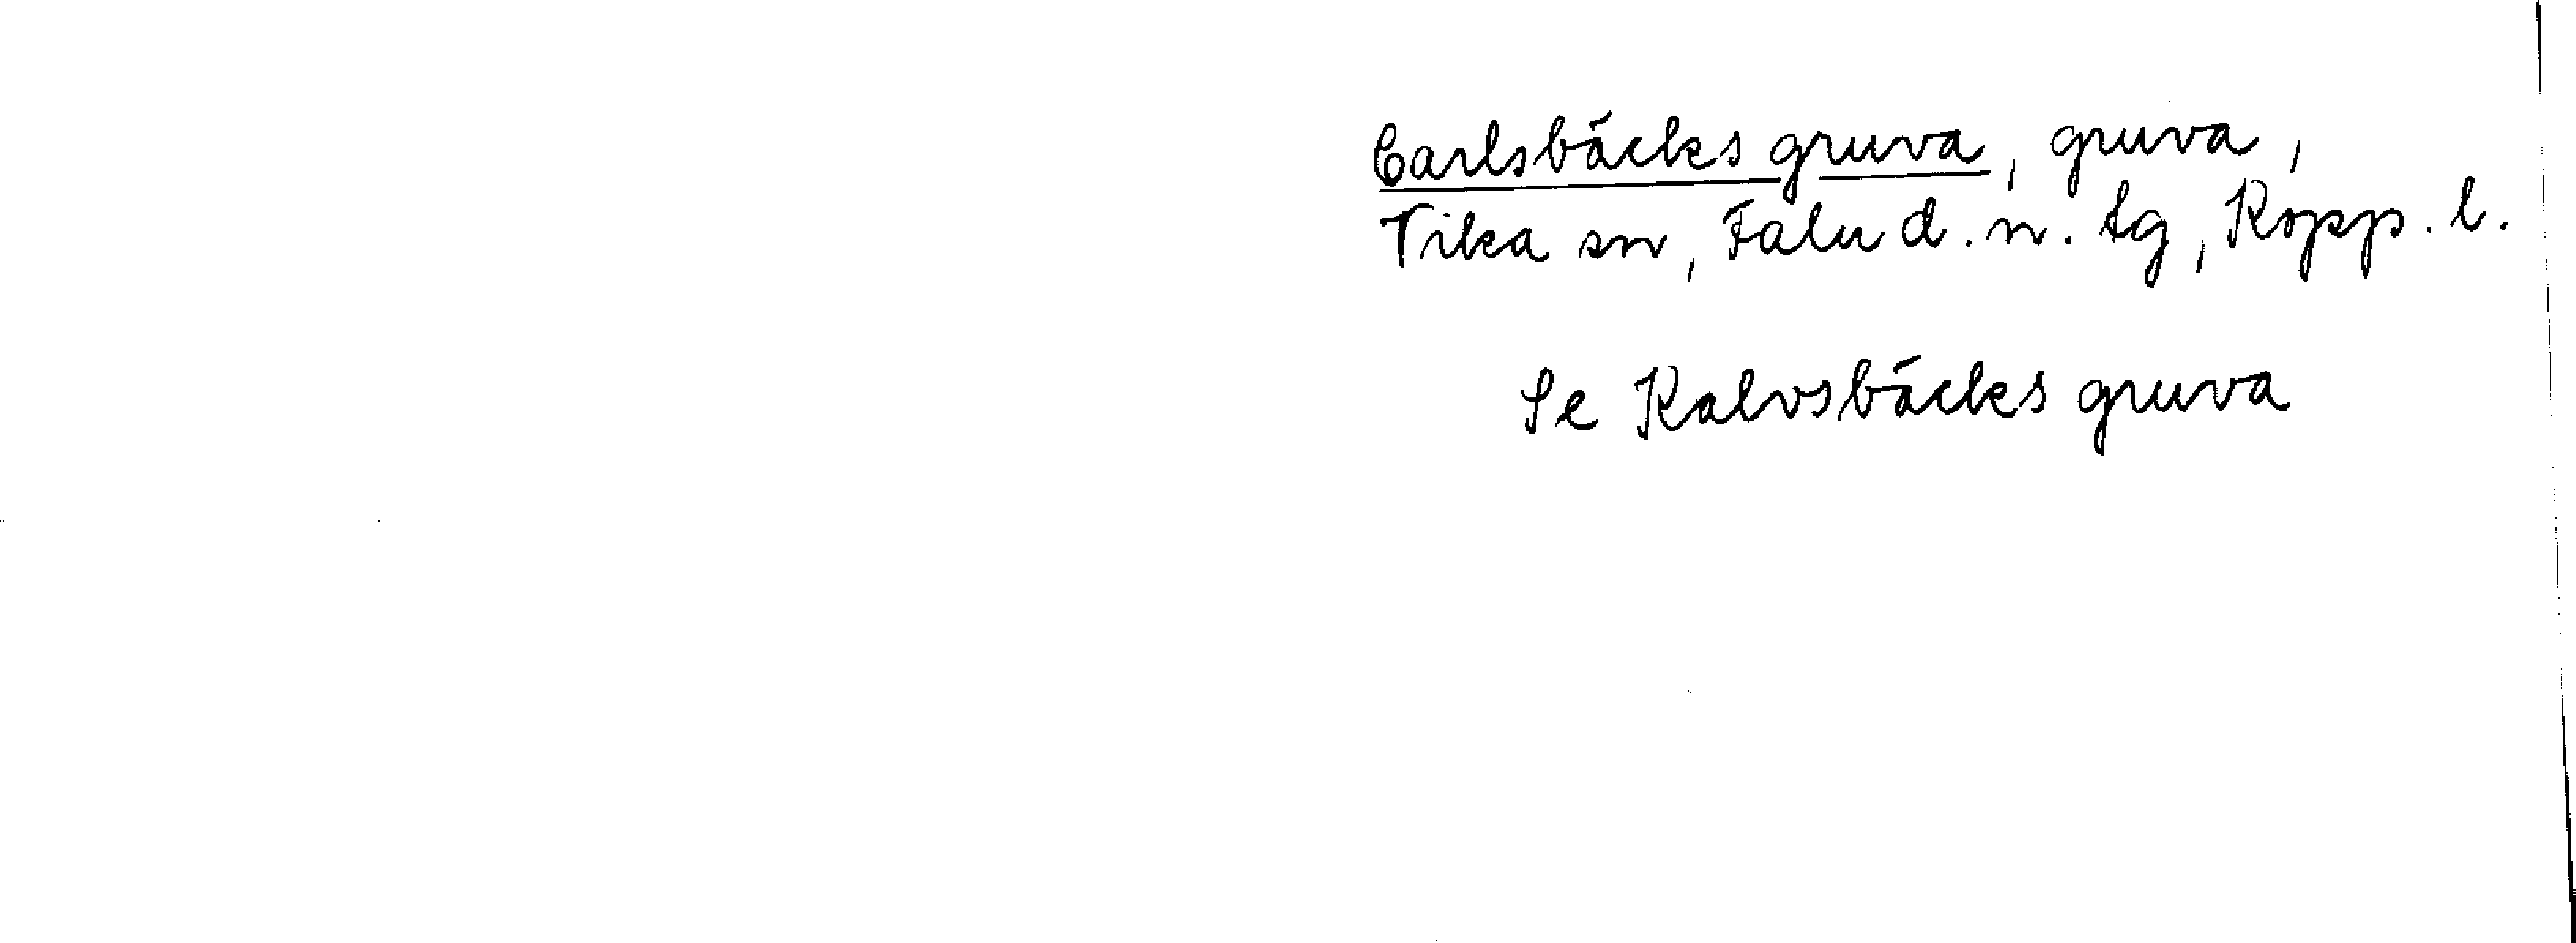 Carlsbäcks gruva, gruva,
Vika sn, Falu d. n. tg, Kopp. l.
Se Kalvsbäcks gruva